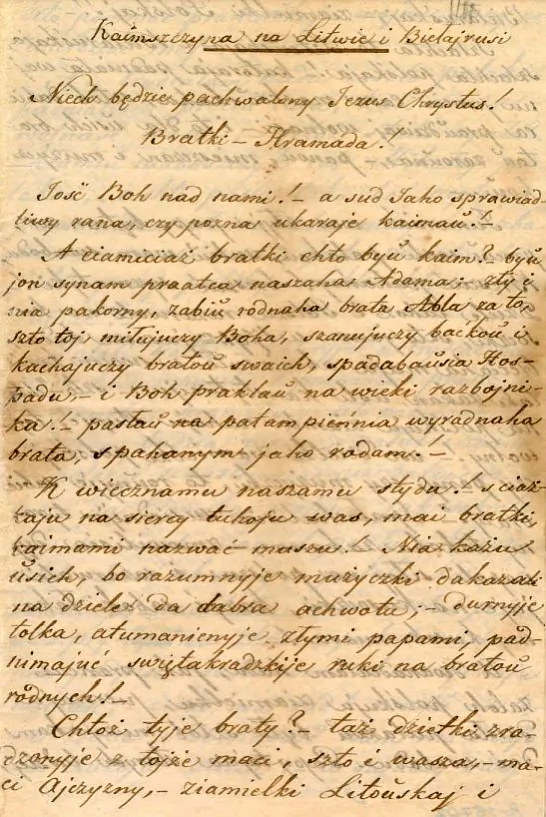 Kaimszczyna na Litwie i Biełajrusi
Niech będzie pachwalony Jezus Chrystus!
Bratki – Hramada!
Jość Boh nad nami! – a sud Jaho sprawiad-
liwy rana, czy pozna ukaraje kaimaŭ! –
A ciamiciaż bratki chto byŭ kaim? byŭ
jon synam praatca naszaha Adama; – zły i
nia pakorny, zabiŭ rodnaha brata Abla za to,
szto toj, miłujuczy Boha, szanujuczy baćkoŭ i
kachajuczy bratoŭ swaich, spadabaŭsia Hos-
padu, – i Boh praklaŭ na wieki razbojni-
ka! – pastaŭ na patampieńnia wyradnaha
brata, s pahanym jaho rodam! –
K wiecznamu naszamu stydu! s ciaż-
kaju na siercy tuhoju was, mai bratki,
kaimami nazwać muszu! Nia każu
usich, bo razumnyje mużyczki dakazali
na dziele da dabra achwotu; – durnyje
tolka, atumanienyje złymi papami, pad-
nimajuć świętakradzkije ruki na bratoŭ
rodnych! –
Chtoż tyje braty? – taż dzietki zra-
dzonyje z tojże maci, szto i wasza, – ma-
ci Ajczyzny, – ziamielki Litoŭskaj i